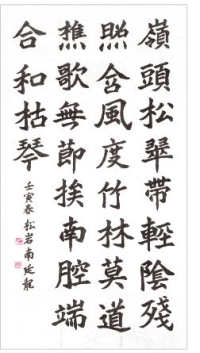 嶺頭松翠帶輕陰殘
照含風度竹林莫道
樵歌無節挨南腔端
合和枯琴
壬寅春 松岩 南廷龍